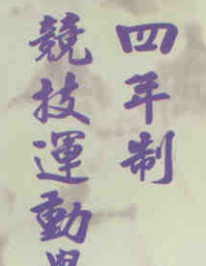 四年制
競技運動